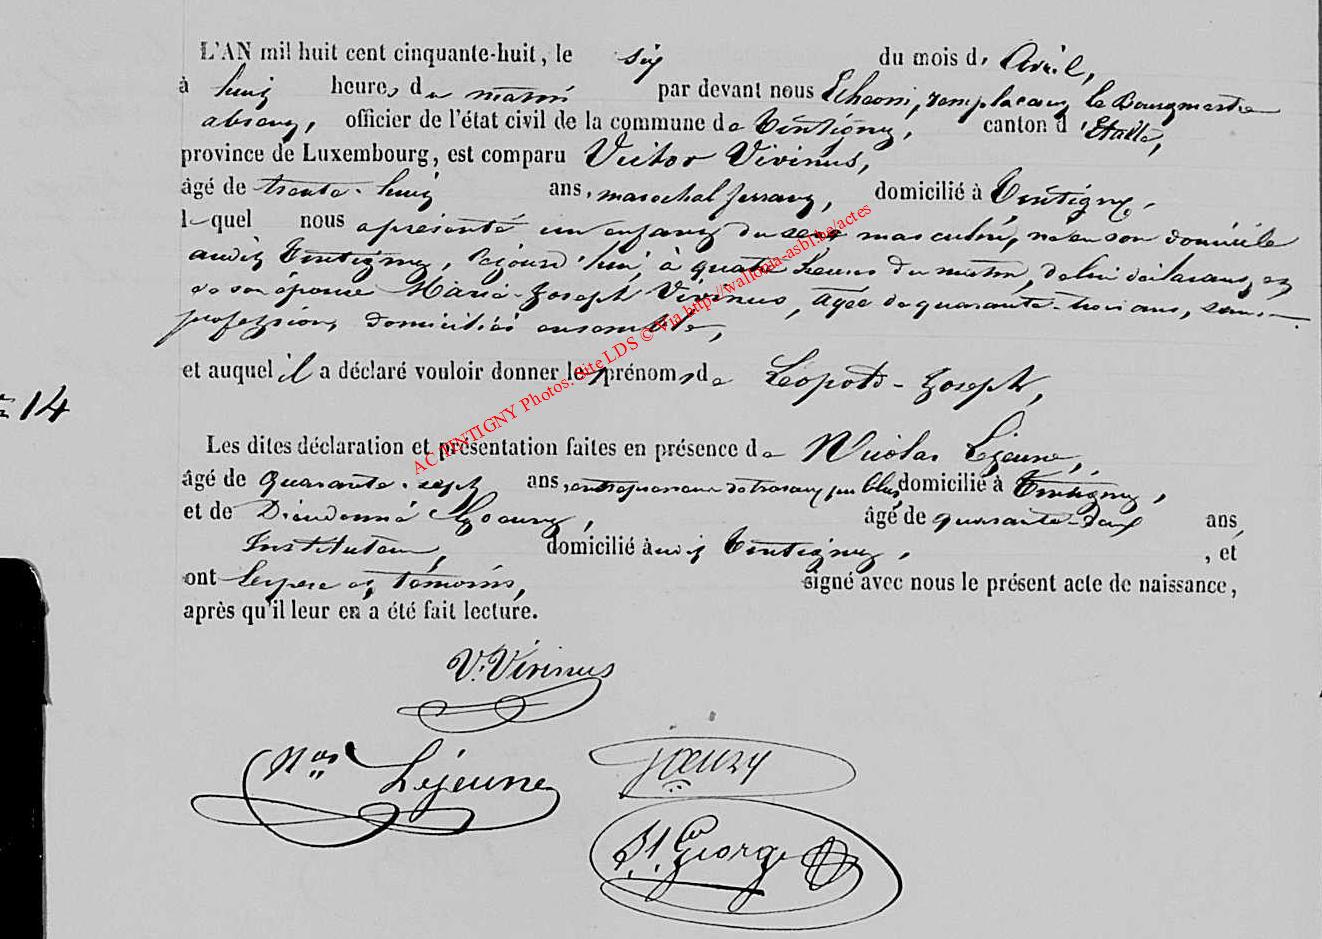 L'AN mil huit cent cinquante-huit, le six du mois d'Avril,
à huit heures du matin par devant nous Echevin, remplaçant le Bourgmestre
absent, officier de l'état civil de la commune de Tintigny, canton d'Etalle,
province de Luxembourg, est comparu Victor Vivinus,
âgé de trente-huit ans, marechal ferrant, domicilié à Tintigny,
lequel nous a présenté un enfant du sexe masculin, né en son domicile
audit Tintigny, aujourd'hui, à quatre heures du matin, de lui déclarant, et
de son épouse Marie-Joseph Vivinus, âgée de quarante-trois ans, sans
profession, domiciliés ensemble,
et auquel il a déclaré vouloir donner les prénoms de Léopold-Joseph,
14
Les dites déclaration et présentation faites en présence de Nicolas Lejeune,
âgé de quarante-sept ans, entrepreneur de travaux publics domicilié à Tintigny,
et de Dieudonné âgé de quarante-deux ans,
Instituteur, domicilié audit Tintigny, , et
ont le père et témoins, signé avec nous le présent acte de naissance,
après qu'il leur en a été fait lecture.
V. Vivinus
Nas Lejeune
George
AC TINTIGNY Photos. Site LDS © Via http://wallonia-asbl.be/actes